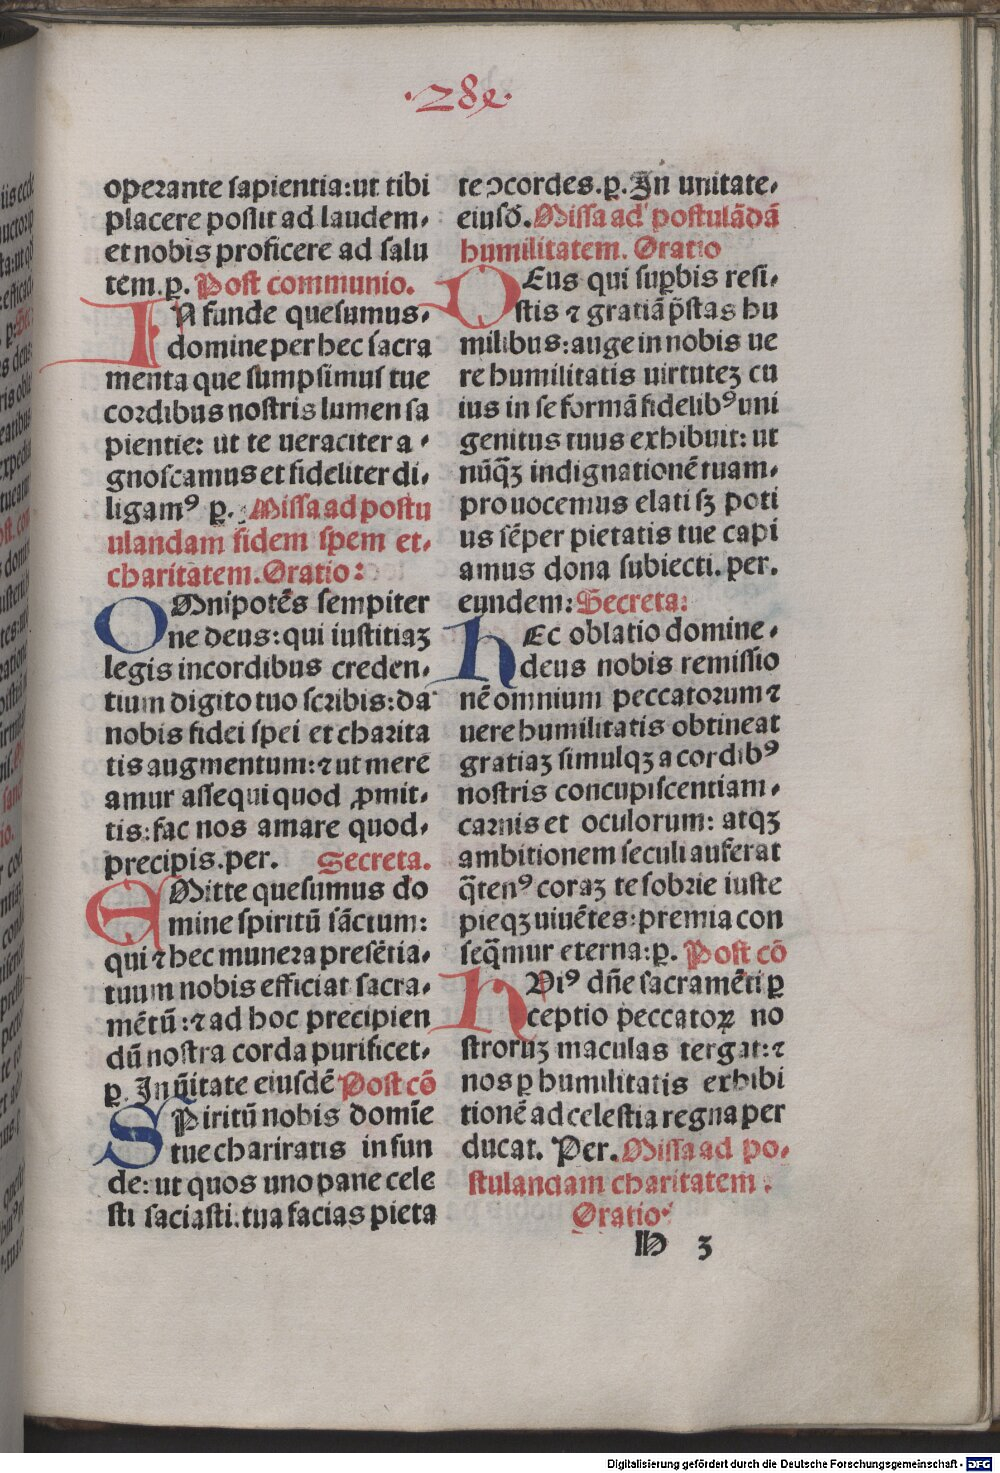 ·28e·
operante sapientia:ut tibi
placere possit ad laudem,
et nobis proficere ad salu
tem.ꝑ. Post communio.
IN funde quesumus,
domine per hec sacra
menta que sumpsimus tue
cordibus nostris lumen sa
pientie: ut te ueraciter a,
gnoscamus et fideliter di,
ligamꝰ ꝑ. Missa ad postu
ulandam fidem spem et,
charitatem.Oratio:
OMnipotẽs sempiter
ne deus:qui iustitiaꝫ
legis incordibus creden,
tium digito tuo scribis:da
nobis fidei spei et charita
tis augmentum:⁊ ut mere
amur assequi quod ꝓmit,
tis:fac nos amare quod,
precipis.per. Secreta.
EMitte quesumus do
mine spiritũ sãctum:
qui ⁊ hec munera presẽtia,
tuum nobis efficiat sacra,
mẽtũ:⁊ ad hoc precipien
dũ nostra corda purificet,
ꝑ. In ũitate eiusdẽ Post cõ
SPiritũ nobis domĩe
tue chariratis infun
de: ut quos uno pane cele
sti saciasti.tua facias pieta
te ↄcordes.ꝑ. In unitate,
eiusđ. Missa ad postulãdã
humilitatem. Oratio
DEus qui suꝑbis resi,
stis ⁊ gratiã p̃stas hu
milibus:auge in nobis ue
re humilitatis uirtuteꝫ cu
ius in se formã fidelibꝰ uni
genitus tuus exhibuit: ut
nũq̃ꝫ indignationẽ tuam,
prouocemus elati sꝫ poti
us sẽper pietatis tue capi
amus dona subiecti. per.
eundem: Secreta:
hEc oblatio domine,
deus nobis remissio
nẽ omnium peccatorum ⁊
uere humilitatis obtineat
gratiaꝫ simulqꝫ a cordibꝰ
nostris concupiscentiam,
carnis et oculorum: atqꝫ
ambitionem seculi auferat
q̃tenꝰ coraꝫ te sobrie iuste
pieqꝫ uiuẽtes:premia con
seq̃mur eterna:ꝑ. Post cõ
hViꝰ dñe sacramẽti ꝑ
ceptio peccatoꝝ no
stroruꝫ maculas tergat:⁊
nos ꝑ humilitatis exhibi
tionẽ ad celestia regna per
ducat. Per. Missa ad po,
stulandam charitatem:
Oratio
H 3
Digitalisierung gefördert durch die Deutsche Forschungsgemeinschaft - DFG